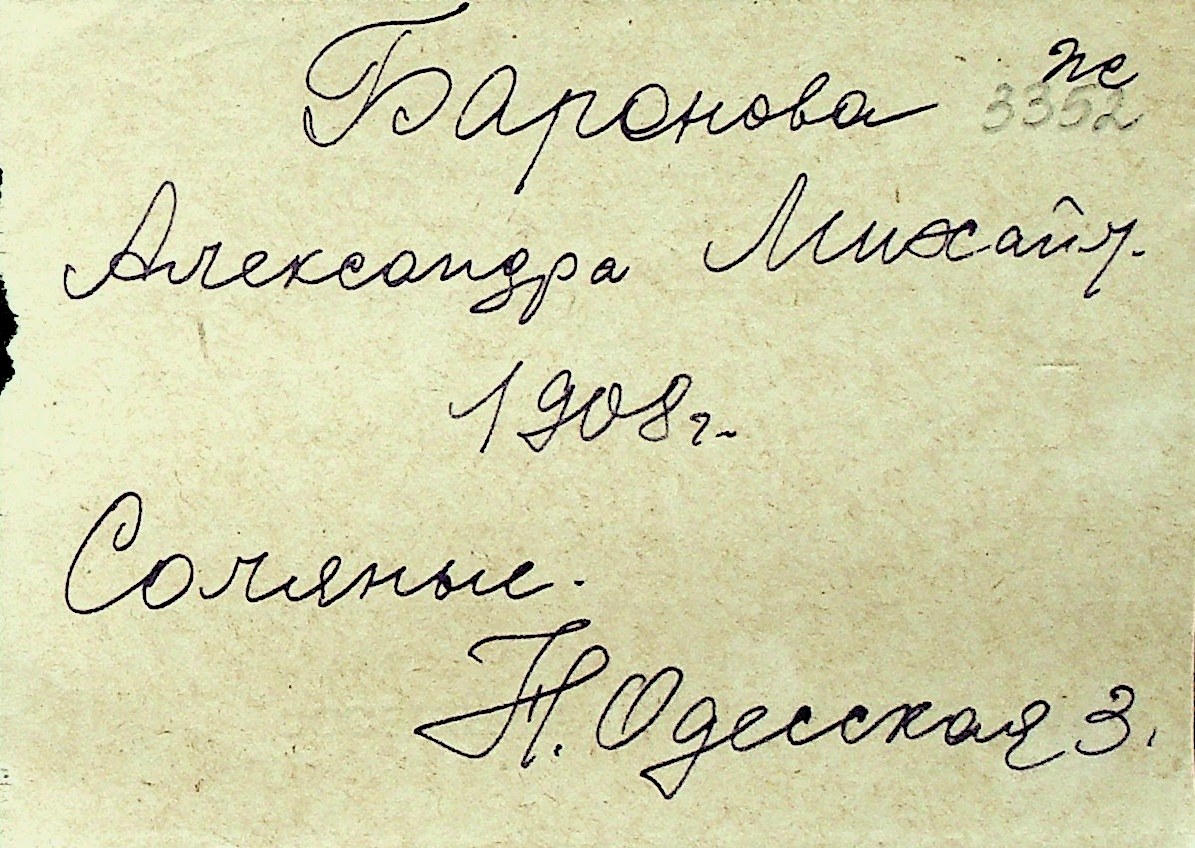 Баронова пс
3352
Александра Михайл.
1908 г.
Соляные.
Н. Одесская 3.